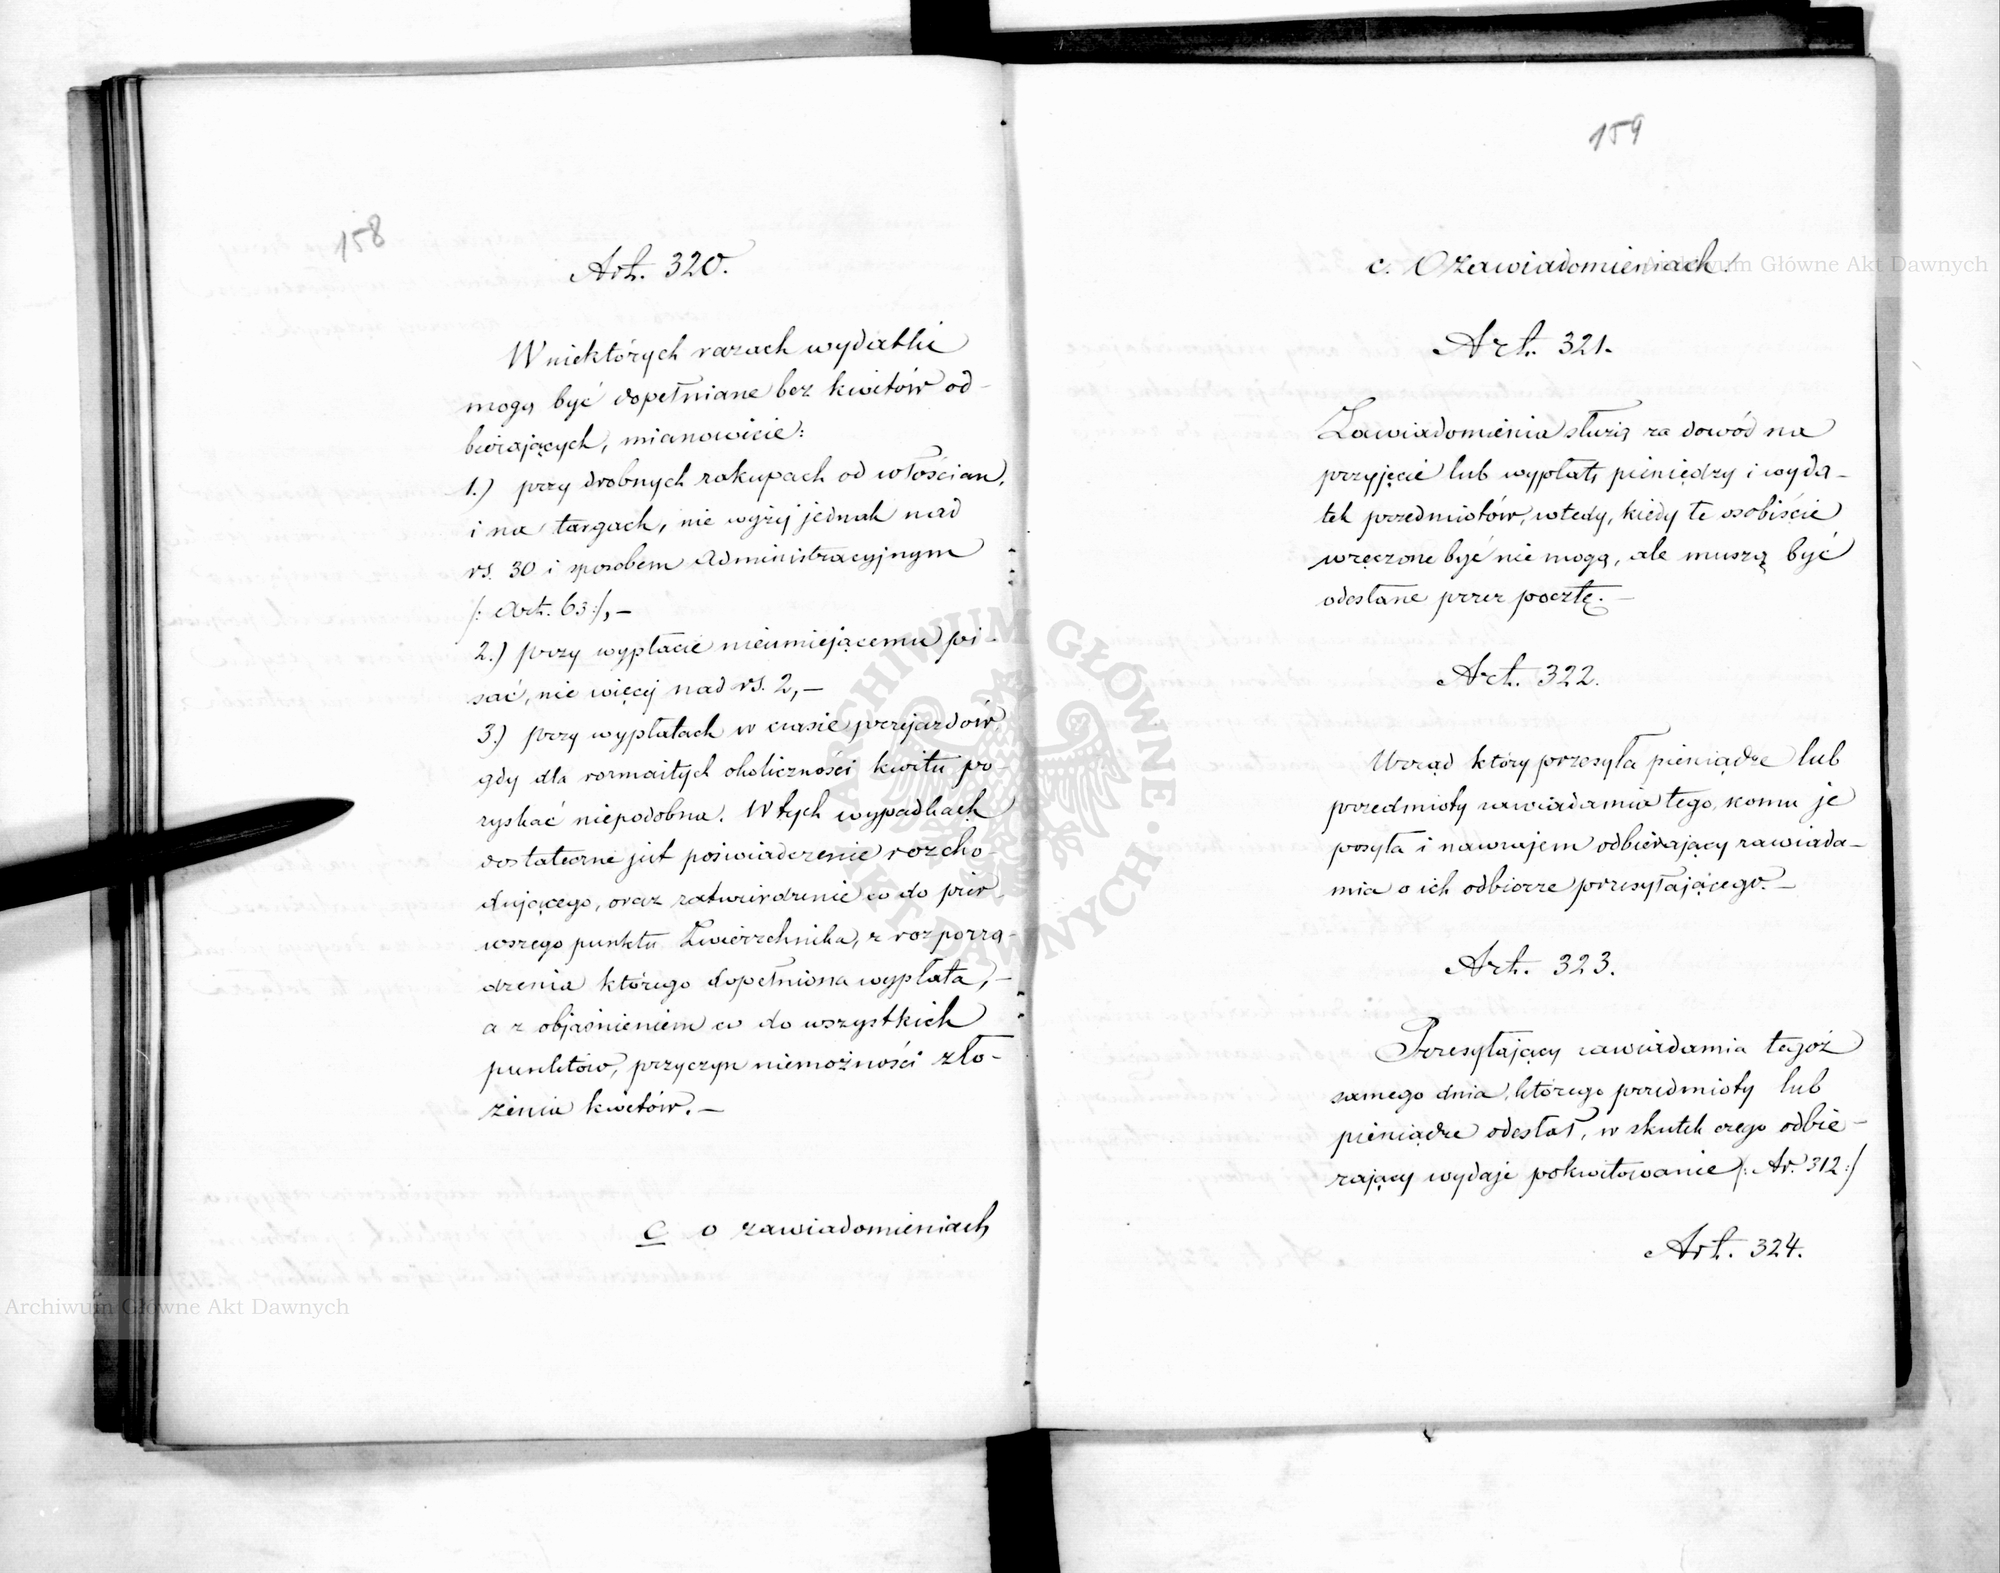 158
Art. 320.
W niektórych razach wydatki
mogą być dopełniane bez kwitów od-
bierających, mianowicie:
1.) przy drobnych zakupach od włościan,
i na targach, nie wyżéj jednak nad
rs. 30 i sposobem Administracyjnym
/: Art. 63 :/, —
2.) przy wypłacie nieumiejącemu pi-
sać, nie więcéj nad rs. 2, —
3.) przy wypłatach w czasie przejazdów,
gdy dla rozmaitych okoliczności kwitu po-
zyskać niepodobna. W tych wypadkach
dostateczne jest poświadczenie rozcho-
dującego, oraz zatwierdzenie co do pier-
wszego punktu Zwierzchnika, z rozporzą-
dzenia którego dopełniona wypłata, —
a z objaśnieniem co do wszystkich
punktów, przyczyn niemożności zło-
żenia kwitów. —
c o zawiadomieniach
159
c. O zawiadomieniach.
Art. 321.
Zawiadomienia służą za dowód na
przyjęcie lub wypłatę pieniędzy i wyda-
tek przedmiotów, wtedy, kiedy te osobiście
wręczone być nie mogą, ale muszą być
odesłane przez pocztę. —
Art. 322.
Urząd który przesyła pieniądze lub
przedmioty zawiadamia tego, komu je
posyła i nawzajem odbierający zawiada-
mia o ich odbiorze przesyłającego. —
Art. 323.
Przesyłający zawiadamia tegoż
samego dnia, którego przedmioty lub
pieniądze odesłał, w skutek czego odbie-
rający wydaje pokwitowanie /: Ar. 312 :/
Art. 324.
Archiwum Główne Akt Dawnych
Archiwum Główne Akt Dawnych
ARCHIWUM GŁÓWNE AKT DAWNYCH